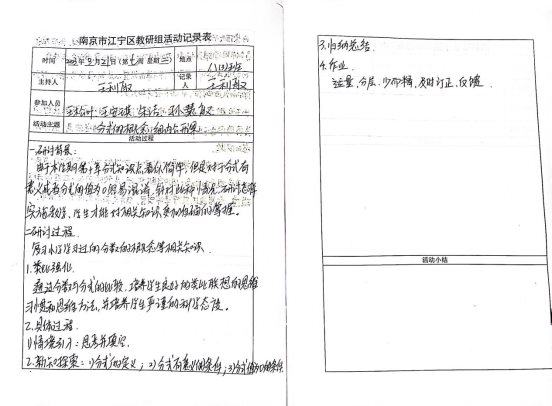 南京市江宁区教研组活动记录表
时间 年3月21日(第 周 星期二) 地点
主持人 王利敏 记录人 王利敏
参加人员
活动主题 分式的概念(组内公开课)
活动过程
一.研讨背景:
由于本学期第十章分式知识点看似简单,但是对于分式有
意义或者分式的值为0很易混淆,针对此种情况,研讨怎样
实施教学,学生才能对相关知识更加准确的掌握。
二.研讨过程
复习小学学习过的分数的概念等相关知识
1.类比强化
通过分数与分式的比较,培养学生良好的类比联想的思维
习惯和思维方法,并培养学生严谨的科学态度。
2.具体过程
1)情境引入:思考并填空
2.新知探索:1)分式的定义;2)分式有意义的条件;3)分式值为0的条件
3.归纳总结
4.作业
适量、分层、少而精、及时订正、反馈
活动小结